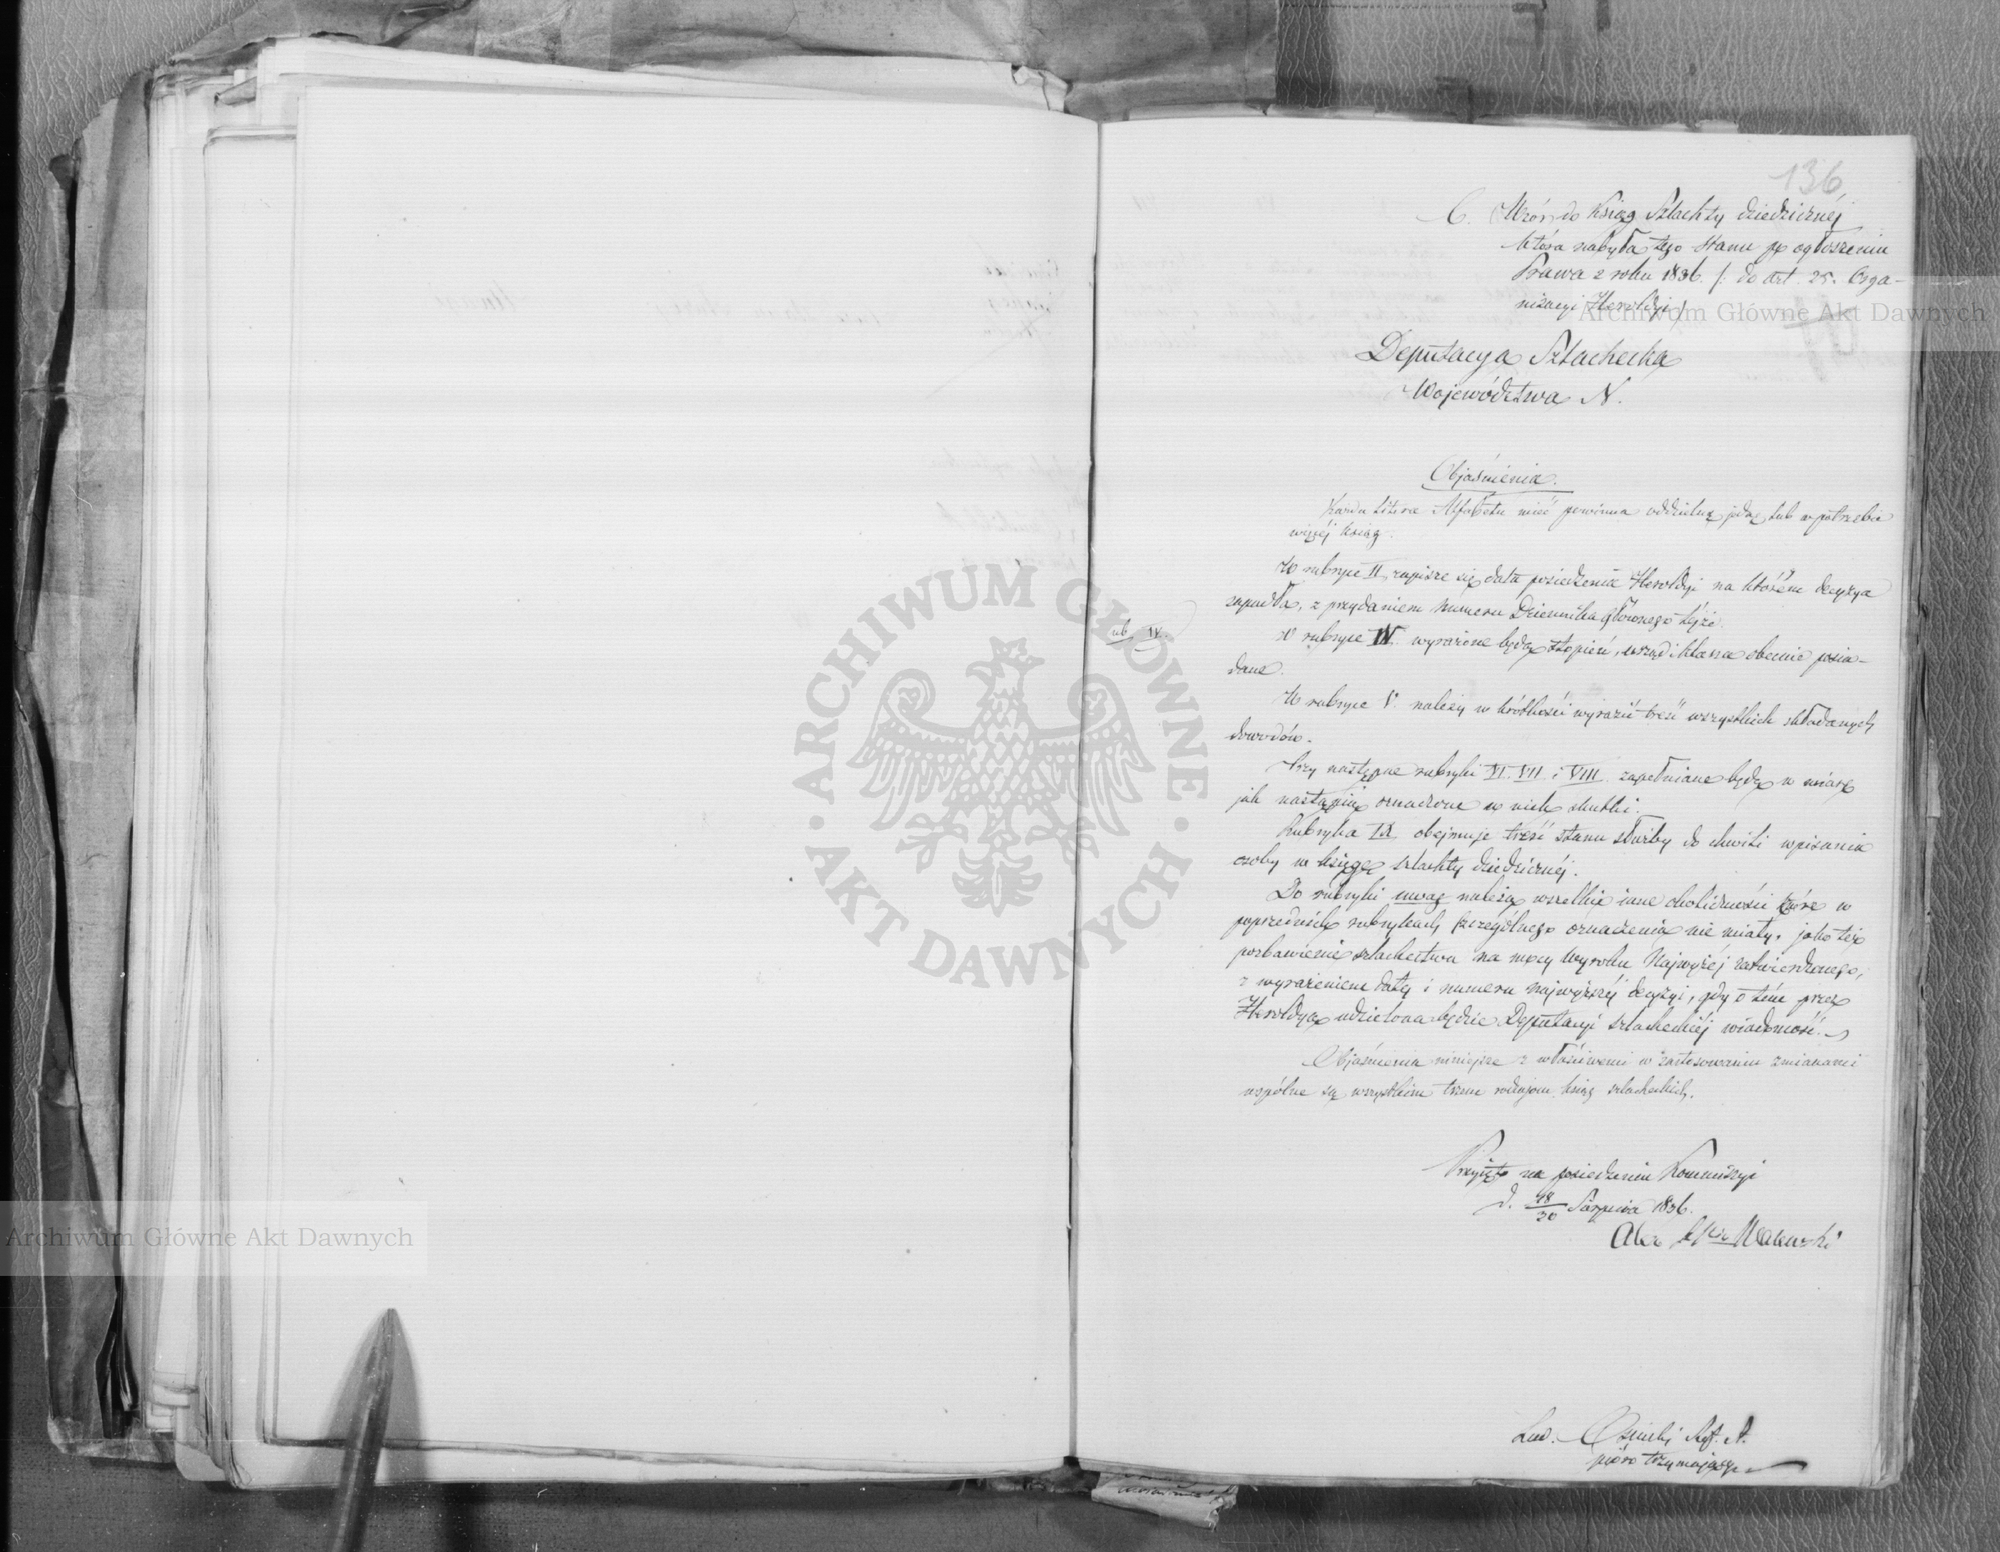 136
C. Wzór do Ksiąg Szlachty dziedzicznéj
która nabyła tego stanu po ogłoszeniu
Prawa z roku 1836. /: do Art. 25. Orga-
nizacyi Heroldyi /
Deputacya Szlachecka
Województwa N.
Objaśnienia.
Każda Litera Alfabetu mieć powinna oddzielną jedną lub w potrzebie
więcéj ksiąg.
W rubryce II zapisze się data posiedzenia Heroldyi na któřém decyzya
zapadła, z przydaniem Numeru Dziennika głównego téjże.
rub. IV.
W rubryce IV. wyrażone będą stopień, urząd i klassa obecnie posia-
dane.
W rubryce V. należy w krótkości wyrazić treść wszystkich składanych
dowodów.
Trzy następne rubryki VI. VII. i VIII. zapełniane będą w miarę
jak nastąpią oznaczone w nich skutki.
Rubryka IX. obejmuje treść stanu służby do chwili wpisania
osoby w księgę szlachty dziedzicznéj.
Do rubryki uwag należą wszelkie inne okoliczności które w
poprzednich rubrykach szczególnego oznaczenia nie miały. jako też
pozbawienie szlachectwa na mocy Wyroku Najwyżéj zatwierdzonego,
z wyrażeniem daty i numeru najwyższéj decyzyi, gdy o tém przez
Heroldyą udzielona będzie Deputacyi szlacheckiéj wiadomość.
Objaśnienia niniejsze z właściwemi w zastosowaniu zmianami
wspólne są wszystkim trzem rodzajom ksiąg szlacheckich.
Przyjęto na posiedzeniu Kommissyi
d. 18/30 Sierpnia 1836.
Walewski
Lud. Osiński Ref. St.
pióro trzymający
Archiwum Główne Akt Dawnych
Archiwum Główne Akt Dawnych
ARCHIWUM GŁÓWNE AKT DAWNYCH